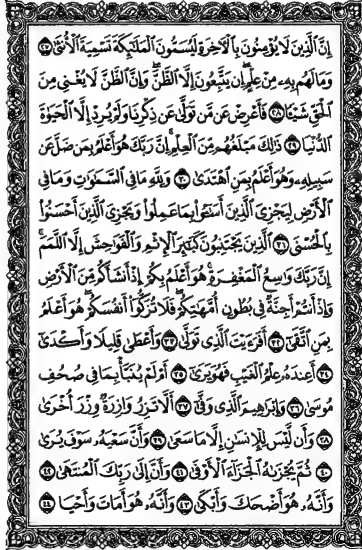 إِنَّ ٱلَّذِينَ لَا يُؤْمِنُونَ بِٱلْـَٔاخِرَةِ لَيُسَمُّونَ ٱلْمَلَٰٓئِكَةَ تَسْمِيَةَ ٱلْأُنثَىٰ ٢٧
وَمَا لَهُم بِهِۦ مِنْ عِلْمٍ ۖ إِن يَتَّبِعُونَ إِلَّا ٱلظَّنَّ ۖ وَإِنَّ ٱلظَّنَّ لَا يُغْنِى مِنَ
ٱلْحَقِّ شَيْـًٔا ٢٨ فَأَعْرِضْ عَن مَّن تَوَلَّىٰ عَن ذِكْرِنَا وَلَمْ يُرِدْ إِلَّا ٱلْحَيَوٰةَ
ٱلدُّنْيَا ٢٩ ذَٰلِكَ مَبْلَغُهُم مِّنَ ٱلْعِلْمِ ۚ إِنَّ رَبَّكَ هُوَ أَعْلَمُ بِمَن ضَلَّ عَن
سَبِيلِهِۦ وَهُوَ أَعْلَمُ بِمَنِ ٱهْتَدَىٰ ٣٠ وَلِلَّهِ مَا فِى ٱلسَّمَٰوَٰتِ وَمَا فِى
ٱلْأَرْضِ لِيَجْزِىَ ٱلَّذِينَ أَسَٰٓـُٔوا۟ بِمَا عَمِلُوا۟ وَيَجْزِىَ ٱلَّذِينَ أَحْسَنُوا۟
بِٱلْحُسْنَى ٣١ ٱلَّذِينَ يَجْتَنِبُونَ كَبَٰٓئِرَ ٱلْإِثْمِ وَٱلْفَوَٰحِشَ إِلَّا ٱللَّمَمَ ۚ
إِنَّ رَبَّكَ وَٰسِعُ ٱلْمَغْفِرَةِ ۚ هُوَ أَعْلَمُ بِكُمْ إِذْ أَنشَأَكُم مِّنَ ٱلْأَرْضِ
وَإِذْ أَنتُمْ أَجِنَّةٌ فِى بُطُونِ أُمَّهَٰتِكُمْ ۖ فَلَا تُزَكُّوٓا۟ أَنفُسَكُمْ ۖ هُوَ أَعْلَمُ
بِمَنِ ٱتَّقَىٰٓ ٣٢ أَفَرَءَيْتَ ٱلَّذِى تَوَلَّىٰ ٣٣ وَأَعْطَىٰ قَلِيلًا وَأَكْدَىٰٓ
٣٤ أَعِندَهُۥ عِلْمُ ٱلْغَيْبِ فَهُوَ يَرَىٰٓ ٣٥ أَمْ لَمْ يُنَبَّأْ بِمَا فِى صُحُفِ
مُوسَىٰ ٣٦ وَإِبْرَٰهِيمَ ٱلَّذِى وَفَّىٰٓ ٣٧ أَلَّا تَزِرُ وَازِرَةٌ وِزْرَ أُخْرَىٰ
٣٨ وَأَن لَّيْسَ لِلْإِنسَٰنِ إِلَّا مَا سَعَىٰ ٣٩ وَأَنَّ سَعْيَهُۥ سَوْفَ يُرَىٰ
٤٠ ثُمَّ يُجْزَىٰهُ ٱلْجَزَآءَ ٱلْأَوْفَىٰ ٤١ وَأَنَّ إِلَىٰ رَبِّكَ ٱلْمُنتَهَىٰ ٤٢
وَأَنَّهُۥ هُوَ أَضْحَكَ وَأَبْكَىٰ ٤٣ وَأَنَّهُۥ هُوَ أَمَاتَ وَأَحْيَا ٤٤